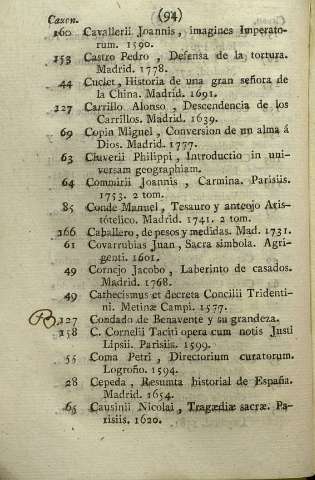 Caxon.
(94)
160 Cavallerii Joannis, imagines Imperato-
rum. 1590.
153 Castro Pedro, Defensa de la tortura.
Madrid. 1778.
44 Cuclet, Historia de una gran señora de
la China. Madrid. 1691.
127 Carrillo Alonso, Descendencia de los
Carrillos. Madrid. 1639.
69 Copin Miguel, Conversion de un alma á
Dios. Madrid. 1777.
63 Cluverii Philippi, Introductio in uni-
versam geographiam.
64 Commirii Joannis, Carmina. Parisiis.
1753. 2 tom.
85 Conde Manuel, Tesauro y anteojo Aris-
tótelico. Madrid. 1741. 2 tom.
166 Caballero, de pesos y medidas. Mad. 1731.
61 Covarrubias Juan, Sacra simbola. Agri-
genti. 1601.
49 Cornejo Jacobo, Laberinto de casados.
Madrid. 1768.
49 Cathecismus et decreta Concilii Tridenti-
ni. Metinæ Campi. 1577.
127 Condado de Benavente y su grandeza.
158 C. Cornelii Taciti opera cum notis Justi
Lipsii. Parisiis. 1599.
55 Coma Petri, Directorium curatorum.
Logroño. 1594.
28 Cepeda, Resumta historial de España.
Madrid. 1654.
65 Causinii Nicolai, Tragædiæ sacræ. Pa-
risiis. 1620.